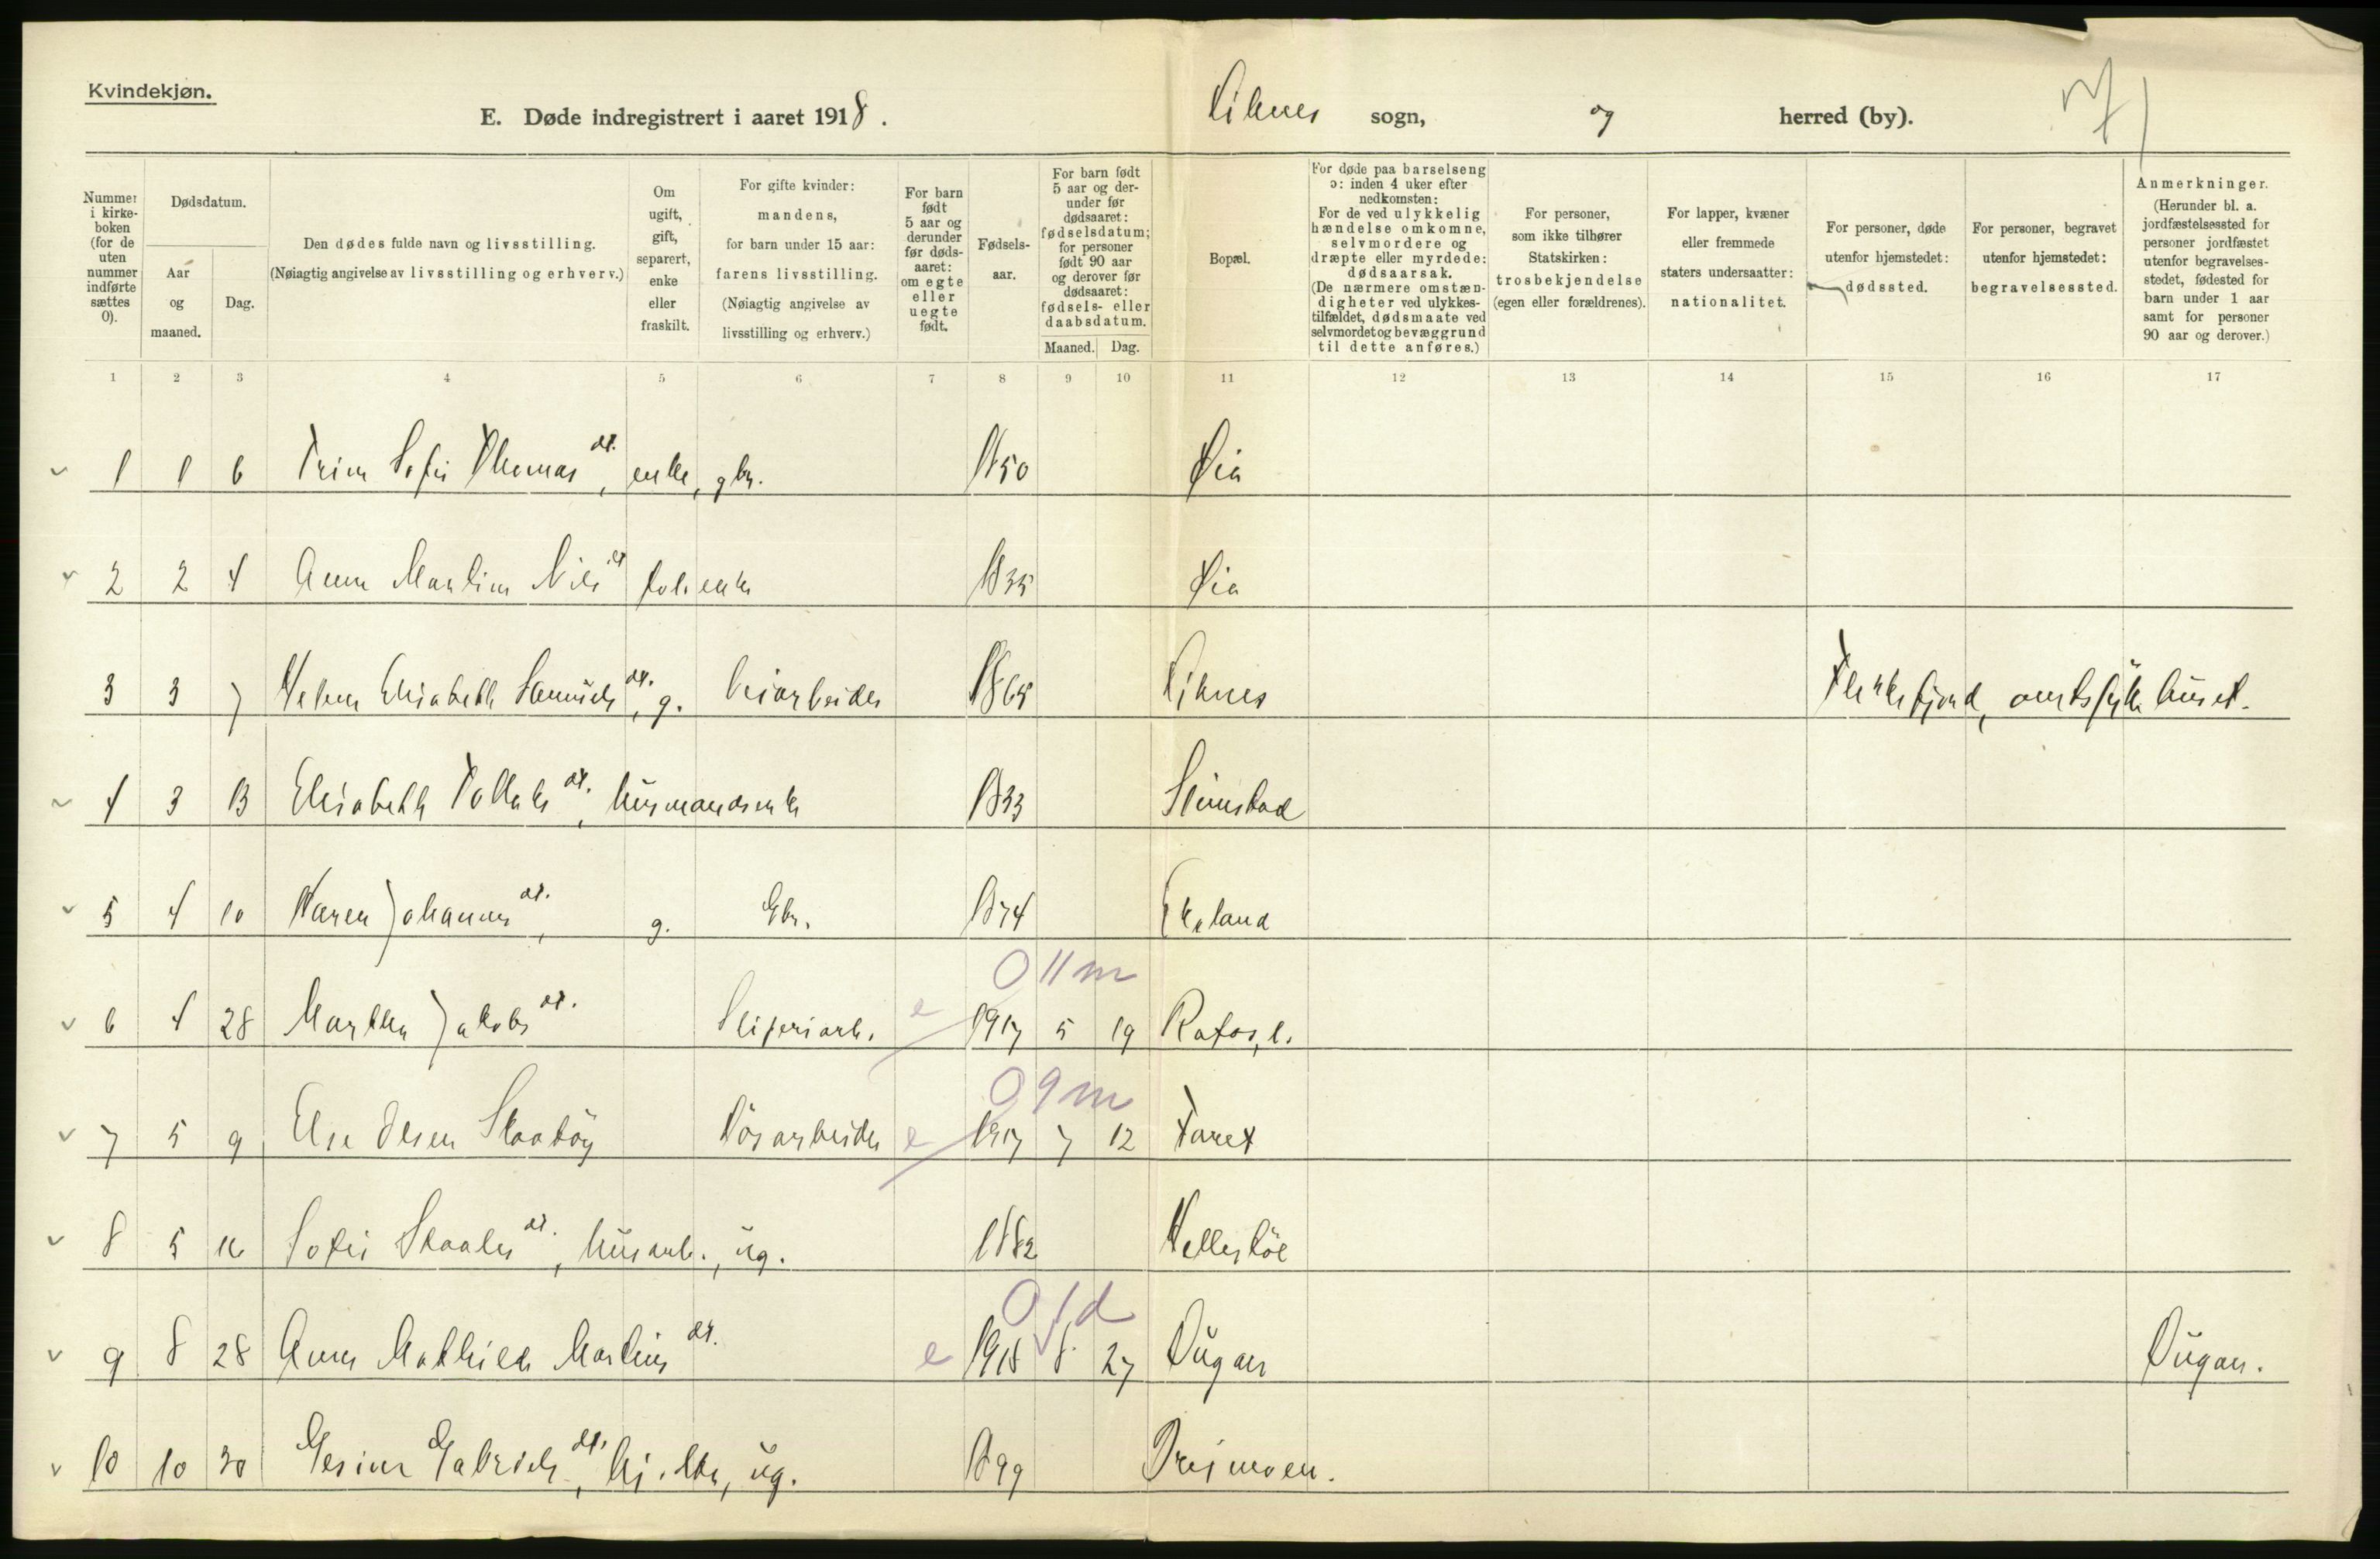 Kvindekjøn.
E. Døde indregistrert i aaret 1918.
Liknes sogn, og herred (by).
Nummer i kirkeboken (for de uten nummer indførte sættes 0).
Dødsdatum.
Aar og maaned.
Dag.
Den dødes fulde navn og livsstilling.
(Nøiagtig angivelse av livsstilling og erhverv.)
Om ugift, gift, separert, enke eller fraskilt.
For gifte kvinder: mandens, for barn under 15 aar: farens livsstilling. (Nøiagtig angivelse av livsstilling og erhverv.)
For barn født 5 aar og derunder før dødsaaret: om egte eller uegte født.
Fødselsaar.
For barn født 5 aar og derunder før dødsaaret: fødselsdatum; for personer født 90 aar og derover før dødsaaret: fødsels- eller daabsdatum.
Maaned. Dag.
Bopæl.
For døde paa barselseng ɔ: inden 4 uker efter nedkomsten: For de ved ulykkelig hændelse omkomne, selvmordere og dræpte eller myrdede: dødsaarsak. (De nærmere omstændigheter ved ulykkestilfældet, dødsmaate ved selvmordet og bevæggrund til dette anføres.)
For personer, som ikke tilhører Statskirken: trosbekjendelse (egen eller forældrenes).
For lapper, kvæner eller fremmede staters undersaatter: nationalitet.
For personer, døde utenfor hjemstedet: dødssted.
For personer, begravet utenfor hjemstedet: begravelsessted.
Anmerkninger. (Herunder bl. a. jordfæstelsessted for personer jordfæstet utenfor begravelsesstedet, fødested for barn under 1 aar samt for personer 90 aar og derover.)
1 2 3 4 5 6 7 8 9 10 11 12 13 14 15 16 17
1 1 6 Trine Sofie Thomasdt., enke, gbr. 1850 Øia
2 2 4 Anna Martine Nilsdt fol. enke 1835 Øia
3 3 7 Helene Elisabeth Samuelsdt., g. Veiarbeider 1865 Liknes Flekkefjord, amtssykehuset.
4 3 13 Elisabeth Tollaksdt., husmandsenke 1833 Slimstad
5 4 10 Karen Johannesdt., g. Gbr. 1874 Egeland
0 11 m
6 4 28 Marthea Jakobsdt. Sliperiarb. e 1917 5 19 Rafos, l.
0 9 m
7 5 9 Else Olsen Skaatøy Løsarbeider e 1917 7 12 Faret
8 5 16 Sofie Skaalesdt., husarb., ug. 1882 Hellestøl
0 1 d
9 8 28 Anna Mathilde Martinsdt. e 1918 8 27 Dugan Dugan.
10 10 30 Gesine Gabrielsdt., hj. dtr., ug. 1899 Dreimoen.